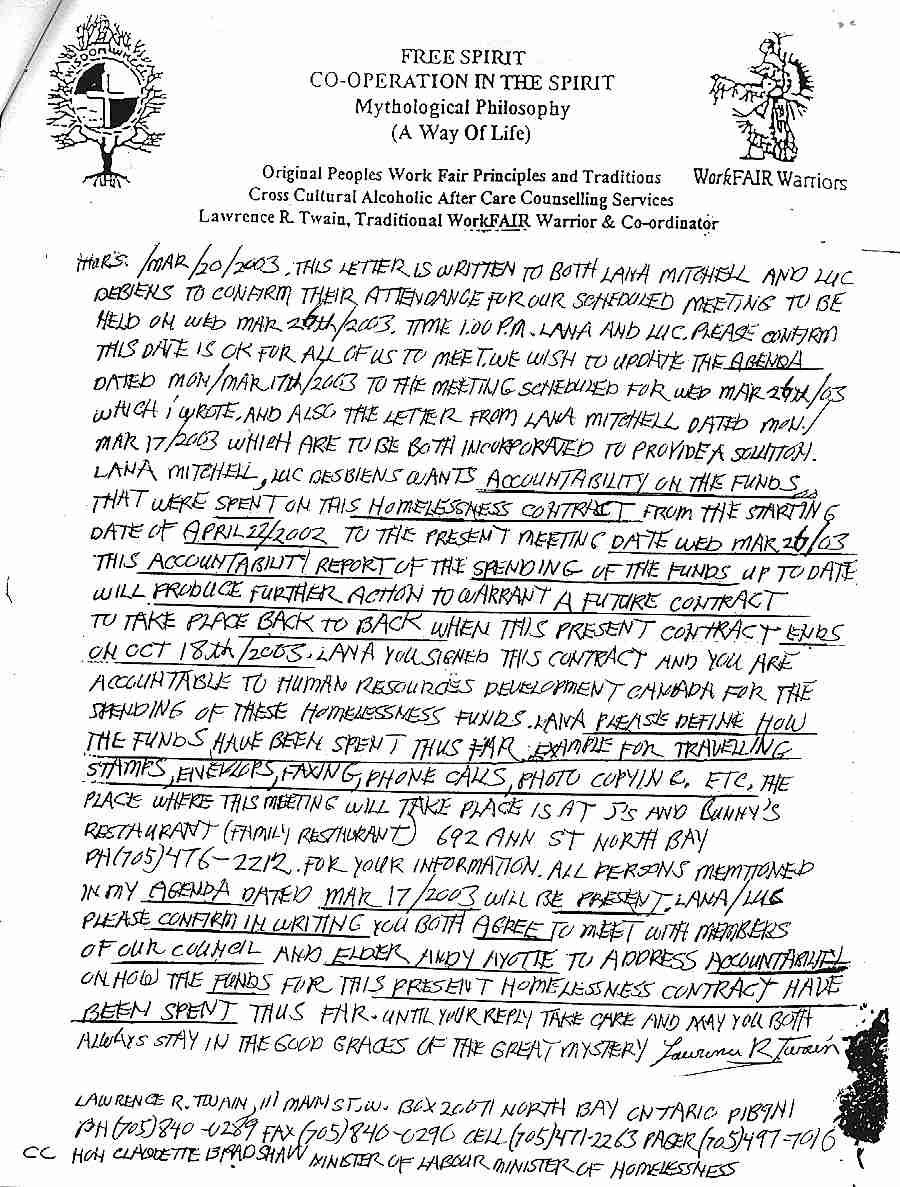 WISDOM WHEEL
FREE SPIRIT
CO-OPERATION IN THE SPIRIT
Mythological Philosophy
(A Way Of Life)
Original Peoples Work Fair Principles and Traditions
WorkFAIR Warriors
Cross Cultural Alcoholic After Care Counselling Services
Lawrence R. Twain, Traditional WorkFAIR Warrior & Co-ordinator
THURS. /MAR/20/2003. THIS LETTER IS WRITTEN TO BOTH LANA MITCHELL AND LUC
DEBIENS TO CONFIRM THEIR ATTENDANCE FOR OUR SCHEDULED MEETING TO BE
HELD ON WED MAR 26th/2003. TIME 1.00 P.M. LANA AND LUC. PLEASE CONFIRM
THIS DATE IS OK FOR ALL OF US TO MEET. WE WISH TO UPDATE THE AGENDA
DATED MON/MAR 17th/2003 TO THE MEETING SCHEDULED FOR WED MAR 26th/03
WHICH i WROTE. AND ALSO THE LETTER FROM LANA MITCHELL DATED MON./
MAR 17/2003 WHICH ARE TO BE BOTH INCORPORATED TO PROVIDE A SOLUTION.
LANA MITCHELL, LUC DESBIENS WANTS ACCOUNTABILITY ON THE FUNDS
THAT WERE SPENT ON THIS HOMELESSNESS CONTRACT FROM THE STARTING
DATE OF APRIL 22/2002 TO THE PRESENT MEETING DATE WED MAR 26/03
THIS ACCOUNTABILITY REPORT OF THE SPENDING OF THE FUNDS UP TO DATE
WILL PRODUCE FURTHER ACTION TO WARRANT A FUTURE CONTRACT
TO TAKE PLACE BACK TO BACK WHEN THIS PRESENT CONTRACT ENDS
ON OCT 18th/2003. LANA YOU SIGNED THIS CONTRACT AND YOU ARE
ACCOUNTABLE TO HUMAN RESOURCES DEVELOPMENT CANADA FOR THE
SPENDING OF THESE HOMELESSNESS FUNDS. LANA PLEASE DEFINE HOW
THE FUNDS HAVE BEEN SPENT THUS FAR. EXAMPLE FOR TRAVELLING
STAMPS, ENEVLOPS, FAXING, PHONE CALLS, PHOTO COPYING. ETC. THE
PLACE WHERE THIS MEETING WILL TAKE PLACE IS AT J'S AND BUNNY'S
RESTAURANT (FAMILY RESTAURANT) 692 ANN ST NORTH BAY
PH (705) 476-2212. FOR YOUR INFORMATION. ALL PERSONS MEMTIONED
IN MY AGENDA DATED MAR 17/2003 WILL BE PRESENT. LANA/LUC
PLEASE CONFIRM IN WRITING YOU BOTH AGREE TO MEET WITH MEMBERS
OF OUR COUNCIL AND ELDER ANDY AYOTTE TO ADDRESS ACCOUNTABILITY
ON HOW THE FUNDS FOR THIS PRESENT HOMELESSNESS CONTRACT HAVE
BEEN SPENT THUS FAR. UNTIL YOUR REPLY TAKE CARE AND MAY YOU BOTH
ALWAYS STAY IN THE GOOD GRACES OF THE GREAT MYSTERY Lawrence R Twain
LAWRENCE R. TWAIN, 111 MAIN ST. W. BOX 20071 NORTH BAY ONTARIO P1B9N1
PH (705) 840-0289 FAX (705) 840-0296 CELL (705) 471-2263 PAGER (705) 497-7016
CC HON CLAUDETTE BRADSHAW MINISTER OF LABOUR MINISTER OF HOMELESSNESS